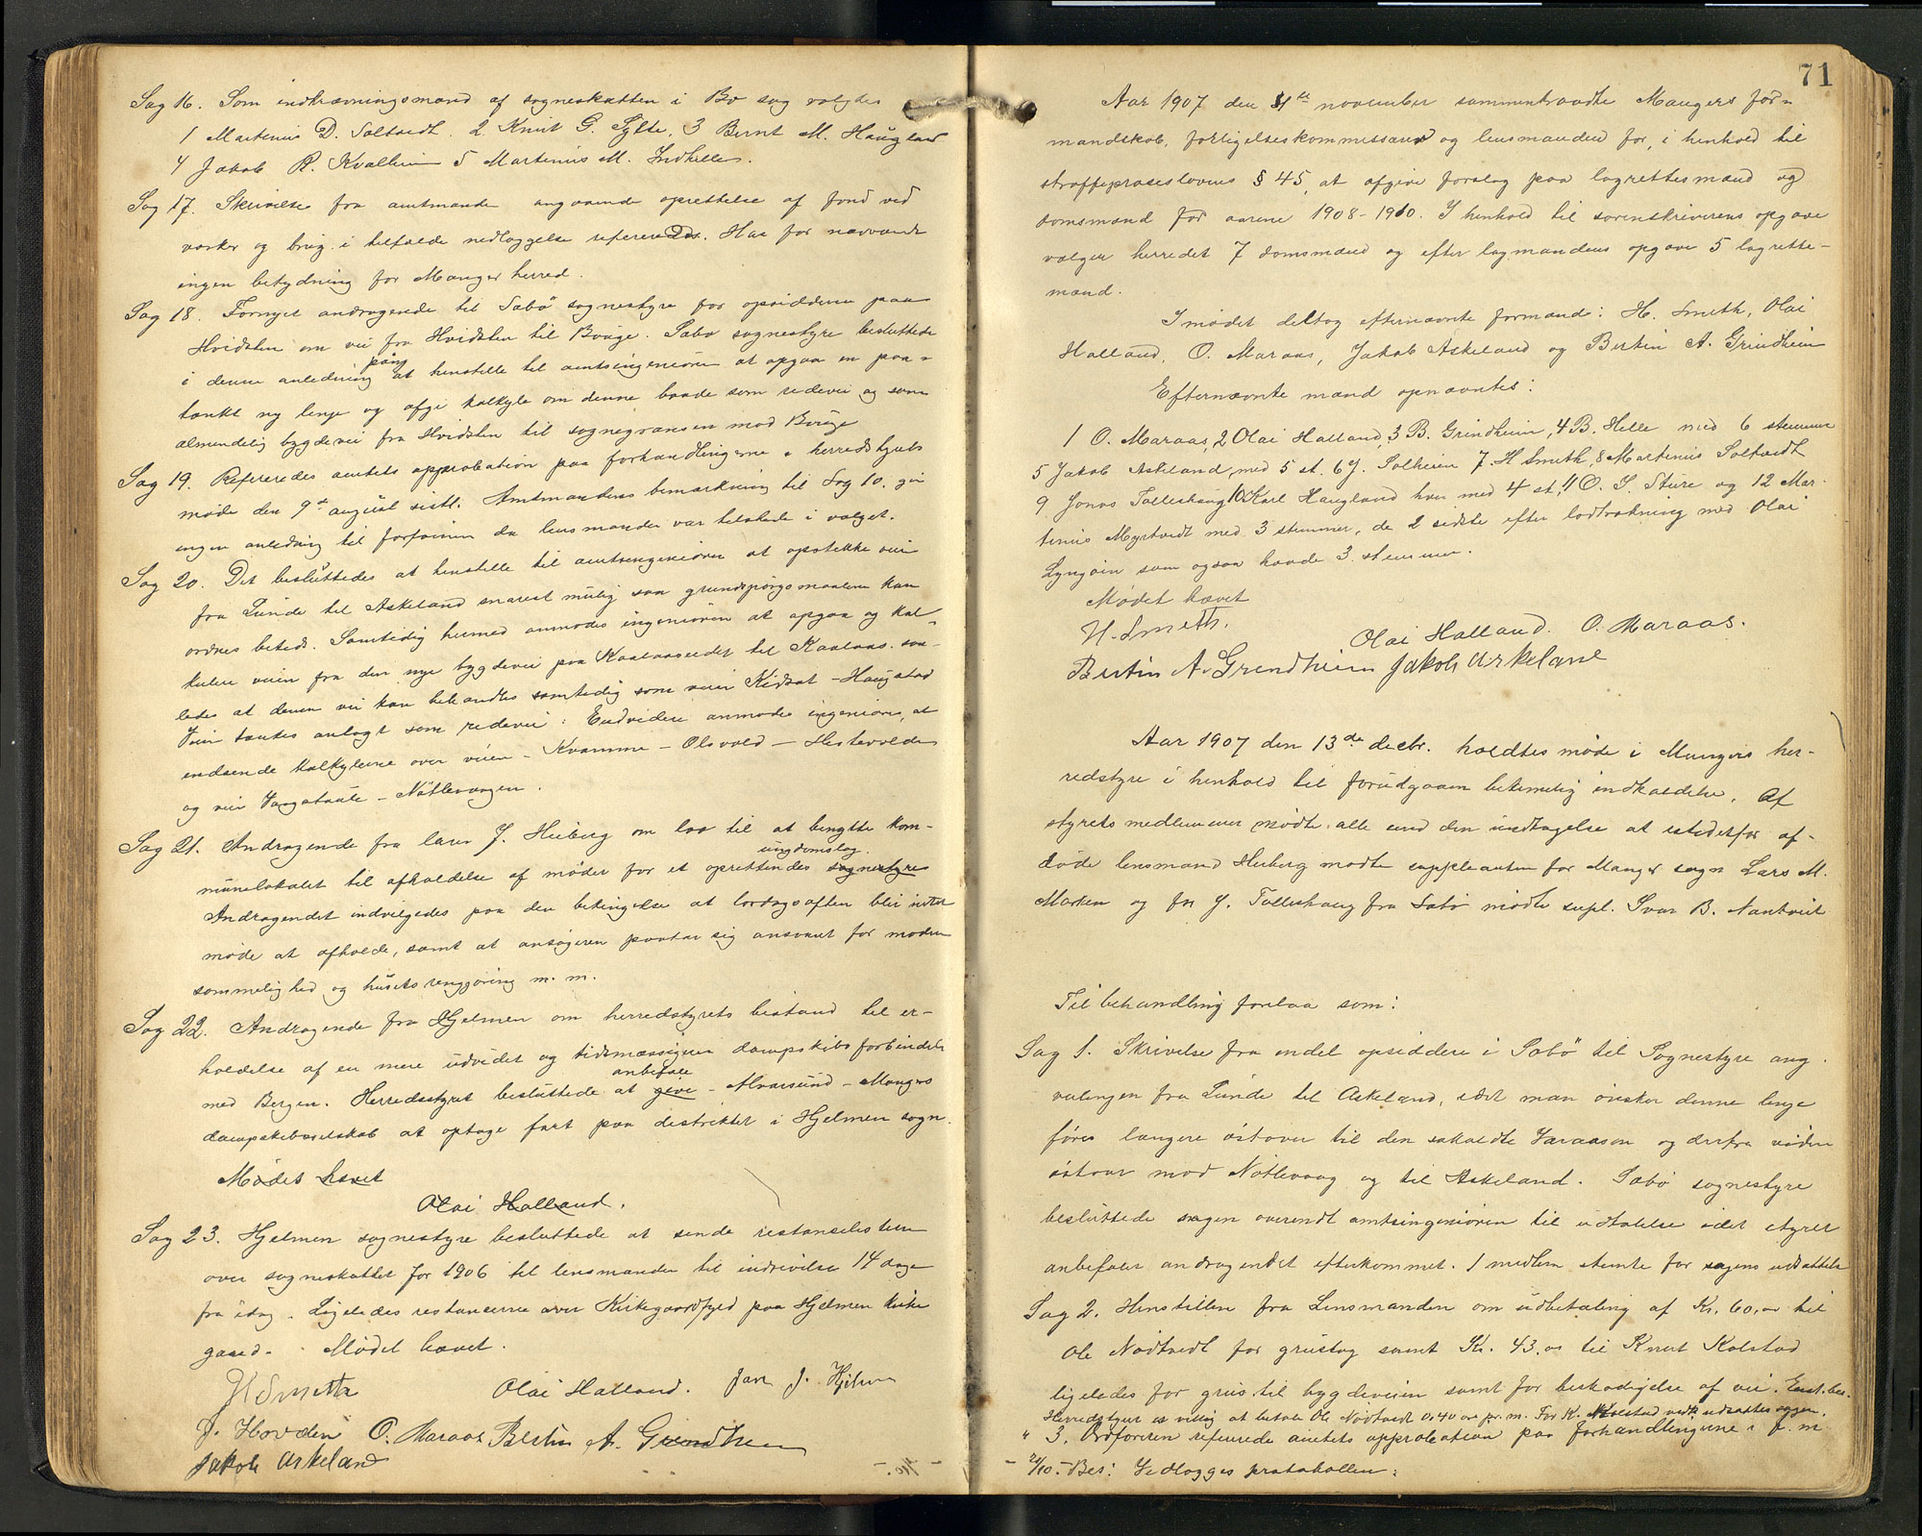 Sag 16. Som indkrævningsmænd af sogneskatten i Bø sogn valgtes
1 Martinius D. Soltvedt. 2. Knut G. Sylte, 3 Bernt M. Haugland
4 Jakob R. Kvalheim 5 Martinus M. Indhelle.
Sag 17. Skrivelse fra amtmanden angaaende oprettelse af fond ved
værker og brug i tilfælde nedlæggelse refereredes. Har for nærværende
ingen betydning for Manger herred.
Sag 18. Fornyet andragende til Sæbø sognestyre fra opsidderne paa
Hvidsten om vei fra Hvidsten til Bøuge. Sæbø sognestyre besluttede
i denne anledning paany at henstille til amtsingeniøren at opgaa en paa-
tænkt ny linje og afgi kalkyle om denne baade som redevei og som
almendelig bygdevei fra Hvidsten til sognegrænsen mod Bøuge
Sag 19. Refereredes amtets approbation paa forhandlingerne i herredstyrets
møde den 9de august sistl. Amtmandens bemærkning til Sag 10. gir
ingen anledning til forføinen da lensmanden var tilstede i valget.
Sag 20. Det besluttedes at henstille til amtsingeniøren at opstikke vei
fra Lunde til Askeland snarest mulig saa grundspørgsmaalene kan
ordnes betids. Samtidig hermed anmodes ingeniøren at opgaa og kal-
kulere veien fra den nye bygdevei paa Kaalaaseidet til Kaalaas. saa-
ledes at denne vei kan behandles samtidig som veien Kidsat - Haugstad
Veien tænkes anlagt som redevei. Endvidere anmodes ingeniøren, at
indsende kalkylerne over veien - Kvamme - Olsvold - Hestevolden
og vei Vaagatræle - Nøtlevaagen.
Sag 21. Andragende fra lærer J. Heiberg om lov til at benytte kom-
munelokalet til afholdelse af møder for et oprettendes sognestyre ungdomslag.
Andragendet indvilgedes paa den betingelse at lørdagsaften blir intet
møde at afholde, samt at ansøgeren paatar sig ansvaret for mødens
sømmelighed og husets rengjøring m. m.
Sag 22. Andragende fra Hjelmen om herredstyrets bistand til er-
holdelse af en mere udvidet og tidsmæssigere dampskibsforbindelse
med Bergen. Herredsstyret besluttede at give anbefale - Alversund - Mangers
dampskibsselskab at optage fart paa distriktet i Hjelmen sogn.
Mødet hævet
Olai Halland.
Sag 23. Hjelmen sognestyre besluttede at sende restanselisterne
over sogneskatten for 1906 til lensmanden til inddrivelse 14 dage
fra idag. Ligeledes restancerne over Kirkegaardsfyld paa Hjelmen kirke
gaard. Mødet hævet.
H Smith Olai Halland. Jan J. Hjelmen
J. Hovden O. Maraas Bertin A. Grindheim
Jakob Askeland
71
Aar 1907 den 4te november sammentraadte Mangers for-
mandskab, forligelseskommissærer og lensmanden for, i henhold til
straffeproseslovens § 45, at afgive forslag paa lagrettesmænd og
domsmænd for aarene 1908-1910. I henhold til sorenskriverens opgave
vælger herredet 7 domsmænd og efter lagmandens opgave 5 lagrette-
mænd.
I mødet deltog efternævnte formænd: H. Smith, Olai
Halland, O. Maraas, Jakob Askeland og Bertin A. Grindheim
Efternævnte mænd opnævntes:
1 O. Maraas, 2 Olai Halland, 3 B. Grindheim, 4 B. Helle med 6 stemmer
5 Jakob Askeland, med 5 st. 6 J. Solheim 7. H Smith, 8 Martinius Soltvedt
9 Jonas Tolleshaug 10 Karl Haugland hver med 4 st, 11 O. S. Sture og 12 Mar-
tinius Myrtvedt med 3 stemmer, de 2 sidste efter lodtrækning med Olai
Lyngøen som ogsaa havde 3 stemmer.
Mødet hævet
H. Smith. Olai Halland. O. Maraas.
Bertin A. Grindheim Jakob Askeland
Aar 1907 den 13de decbr. holdtes møde i Mangers her-
redstyre i henhold til forudgaaen betimelig indkaldelse. Af
styrets medlemmer mødte alle med den undtagelse at istedetfor af-
døde lensmand Heiberg mødte suppleanten for Manger sogn Lars M.
Marken og for J. Tolleshaug fra Sæbø mødte supl. Ivar B. Nautvedt
Til behandling forelaa som:
Sag 1. Skrivelse fra endel opsiddere i Sæbø til Sognestyre ang.
veilengen fra Lunde til Askeland, idet man ønsker denne linje
føres længere østover til den såkaldte Varaasen og derfra videre
østover mod Nøtlevaag og til Askeland. Sæbø sognestyre
besluttede sagen oversendt amtsingeniøren til udtalelse idet styret
anbefaler andragendet efterkommet. 1 medlem stemte for sagens udsættelse
Sag 2. Henstillen fra Lensmanden om udbetaling af Kr. 60,00 til
Ole Nødtvedt for grustag samt Kr. 43.00 til Knut Kolstad
ligeledes for grus til bygdeveien samt for beskadigelse af vei. Enst. bes.
Herredstyret er villig at betale Ole Nødtvedt 0,40 øre pr. m. For K. Kolstad vedk. udsættes sagen.
" 3. Ordføreren refererede amtets approbation paa forhandlingerne i h. m.
- 21/10. - Bes: Vedlægges protokollen.